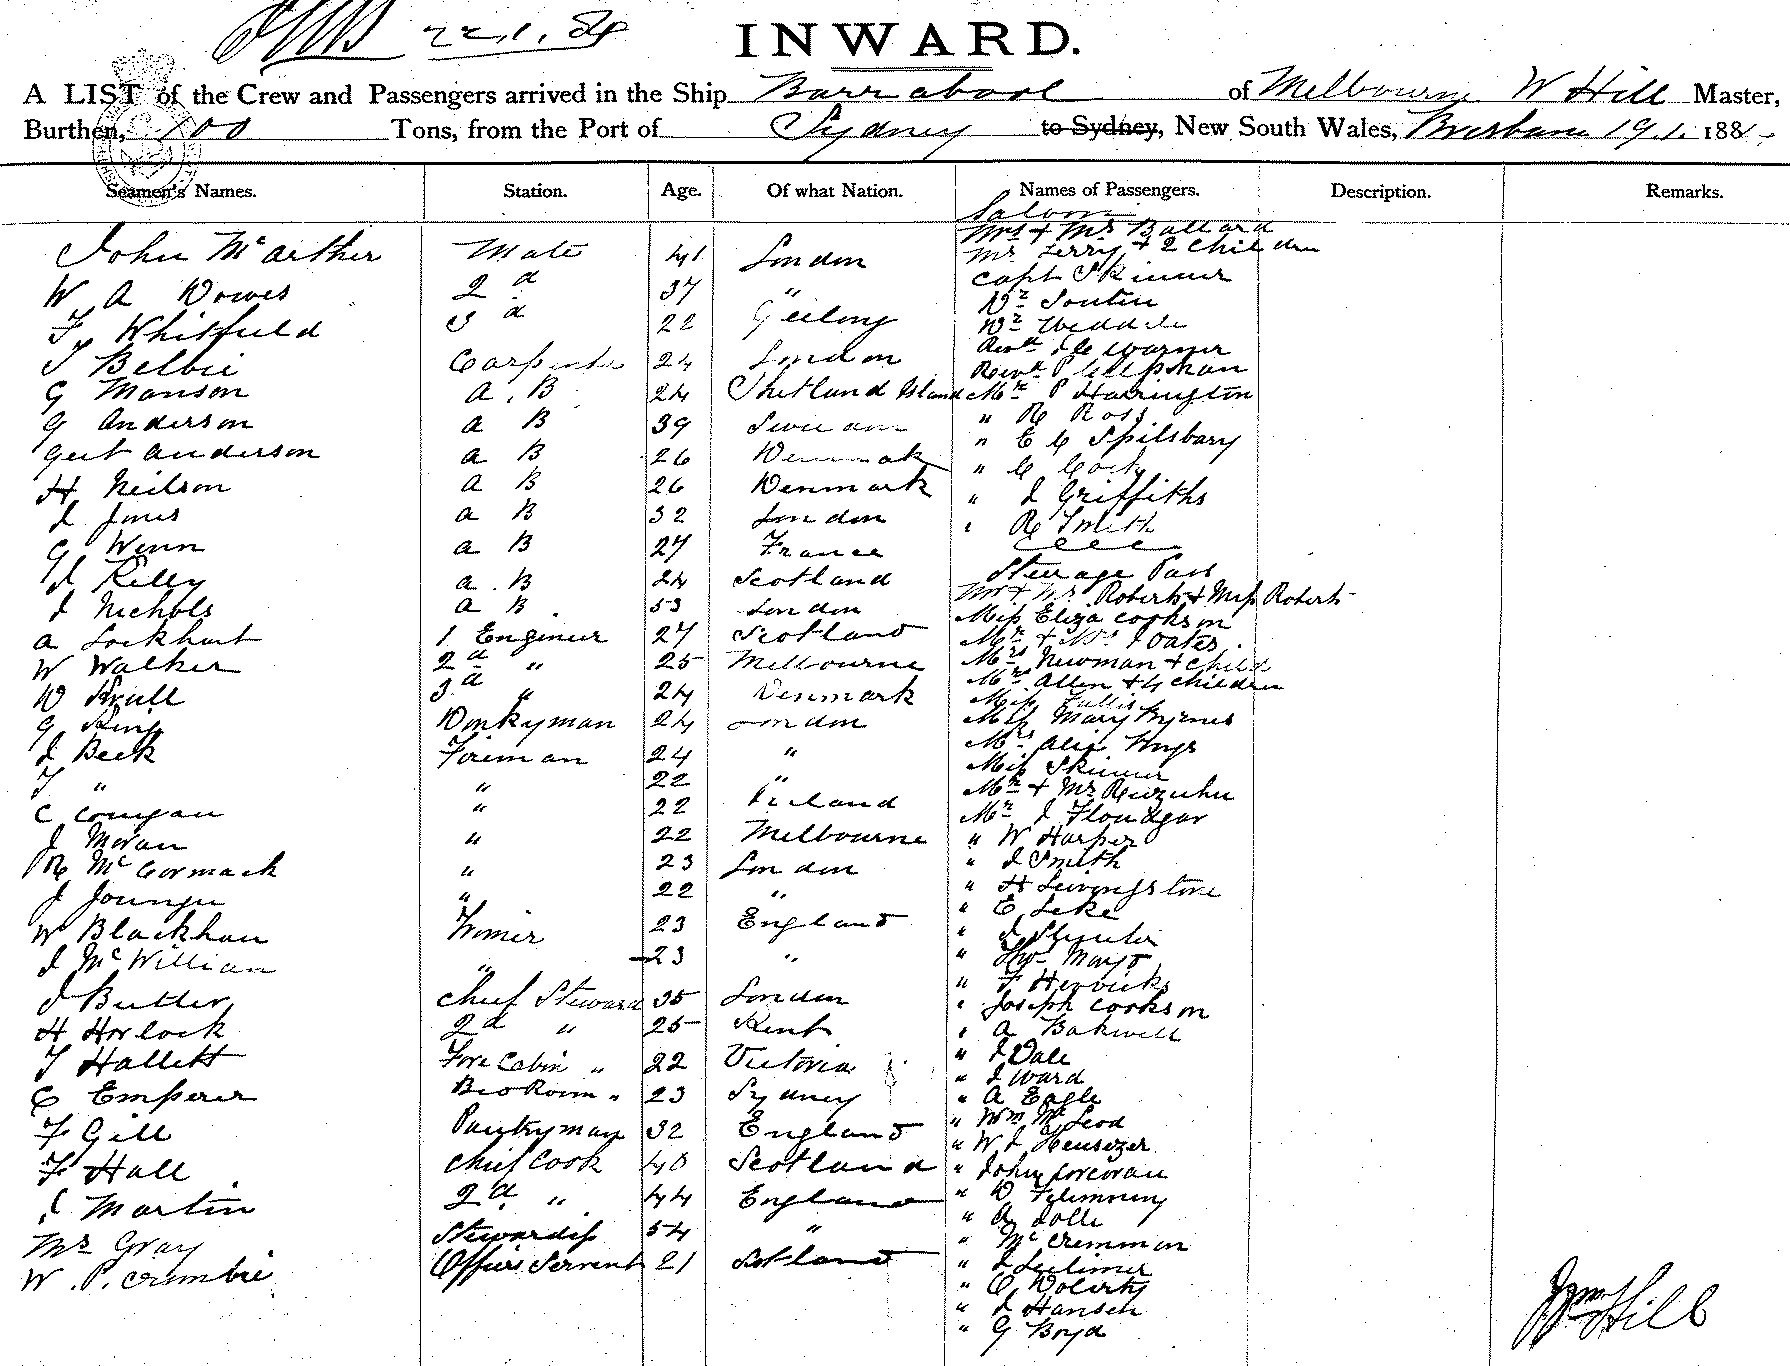 22.1.84
INWARD.
A LIST of the Crew and Passengers arrived in the Ship Barrabool of Melbourne W Hill Master,
Burthen, 100 Tons, from the Port of Sydney to Sydney, New South Wales, Brisbane 19.1. 188
Seamen's Names. Station. Age. Of what Nation. Names of Passengers. Description. Remarks.
Saloon
Mrs + Mr Ballard
John McArther Mate 41 London Mr Terry + 2 Children
Capt Skinner
W A Dowes 2d 37 " Dr Soutin
F Whitfield 3d 22 Geelong Dr Weddele
Revd J C Warner
T Belbie Carpenter 24 London Revd P Clepman
G Manson A.B 24 Shetland Island Mr P Harrington
G Anderson A B 39 " R Ross
Gert Anderson A B 26 Denmark " E C Spilsbury
H Neilson A B 26 Denmark " C Cork
J Jones A B 32 London " J Griffiths
G Wenn A B 27 France " R Smith
J Kelly A.B 24 Scotland Steerage Pass
J Nichols A B 53 London Mr + Mrs Roberts + Miss Roberts
A Lockhart 1 Engineer 27 Scotland Miss Eliza Cookson
W Walker 2d " 25 Melbourne Mr + Mrs J Oates
W Krull 3d " 24 Denmark Mrs Newman + Child
Mrs Allen + 4 Children
G King Donkyman 24 London Miss Fallis
Miss Mary Byrnes
J Beck Fireman 24 " Mrs Alix Hays
T " " 22 " Miss Skinner
C Corrigan " 22 Ireland Mr + Mrs
Mr J Floudgar
J Moran " 22 Melbourne " W Harper
R McCormack " 23 London " J Smith
J Jounge " 22 " " H Livingstone
" E Leke
W Blackhan Trimer 23 England " J
J McWillian " 23 " " Thos Mayo
" F Herricks
J Butler Chief Steward 35 London " Joseph Cookson
H Horlock 2d " 25 Kent " A Bakwell
T Hallett Fore Cabin " 22 Victoria " J Dale
" J Ward
C Emperer " 23 Sydney " A Eagle
" Wm McLeod
F Gill Pantryman 32 England " W J Heusezer
F Hall Chief Cook 40 Scotland " John Corcoran
J Martin 2d " 44 England " D
" A Jolle
Mrs Gray Stewardess 54 " " McCremmon
W. P. Crumbie Officers Servent 21 Scotland " J
" C Doherty
" J Hansen
" G Boyd
Wm Hill